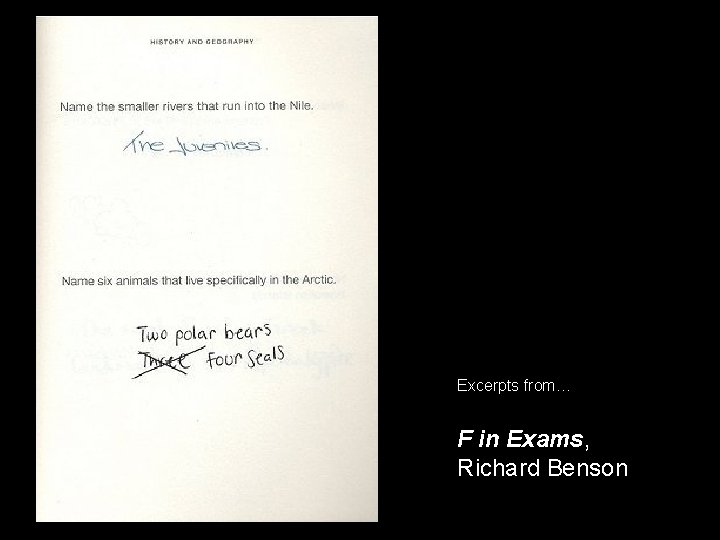 HISTORY AND GEOGRAPHY
Name the smaller rivers that run into the Nile.
The Juveniles.
Name six animals that live specifically in the Arctic.
Two polar bears
Three four seals
Excerpts from...
F in Exams,
Richard Benson